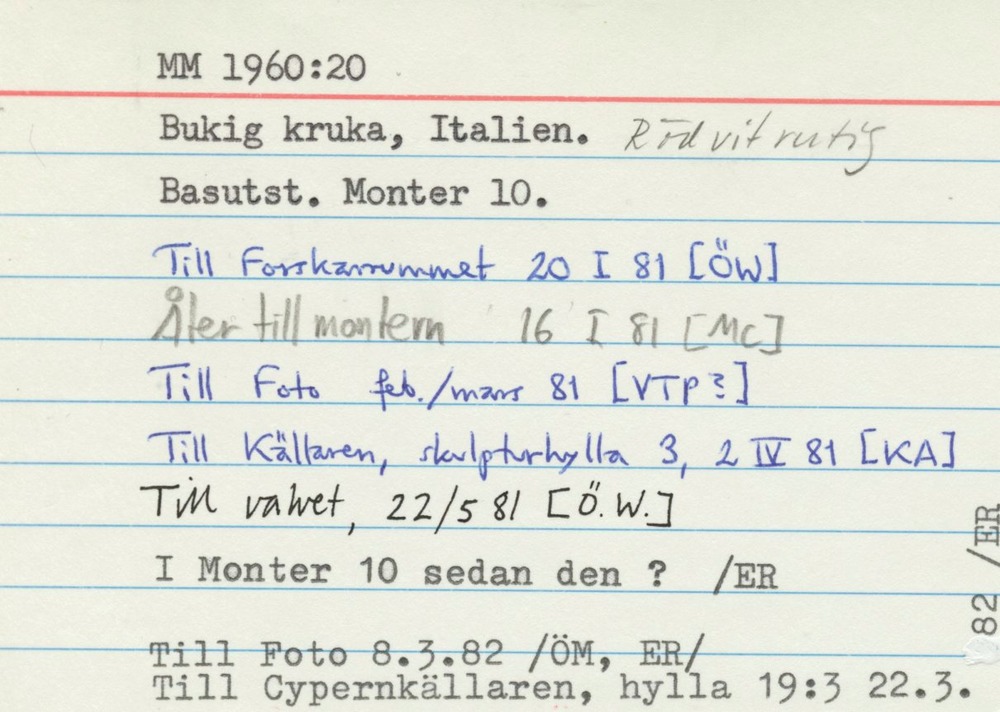 MM 1960:20
Bukig kruka, Italien. Rödvitrutig
Basutst. Monter 10.
Till Forskarrummet 20 I 81 [ÖW]
Åter till montern 16 I 81 [MC]
Till Foto feb./mars 81 [VTP?]
Till Källaren, skulpturhylla 3, 2 IV 81 [KA]
Till valvet, 22/5 81 [Ö.W.]
I Monter 10 sedan den ? /ER
Till Foto 8.3.82 /ÖM, ER/
Till Cypernkällaren, hylla 19:3 22.3.
82 /ER